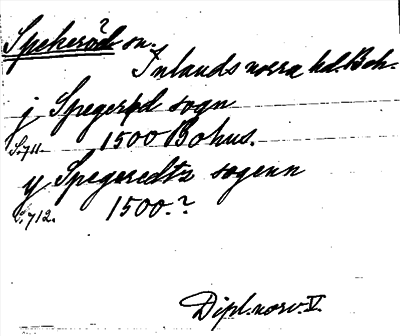 Spekeröd? sn.
Inlands norra hd. Boh.
j Spegerød sogn
S. 711. 1500 Bohus.
y Spegeredtz sogenn
S. 712. 1500.?
Dipl. norv. V.